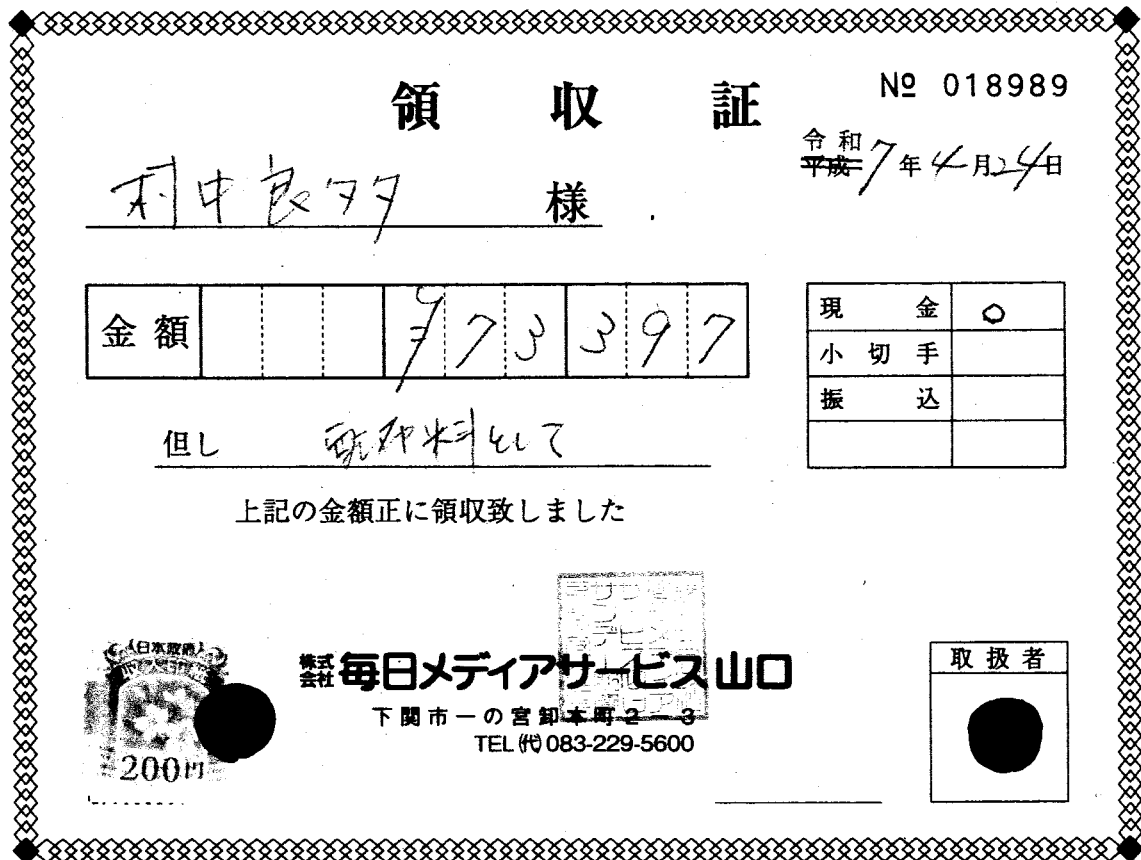 領収証
№ 018989
令和
平成 7年4月24日
村中良 様
金額 ¥73397
現金 ○
小切手
振込
但し 配布料として
上記の金額正に領収致しました
日本政府
200円
株式会社 毎日メディアサービス山口
下関市一の宮卸本町2-3
TEL(代)083-229-5600
取扱者